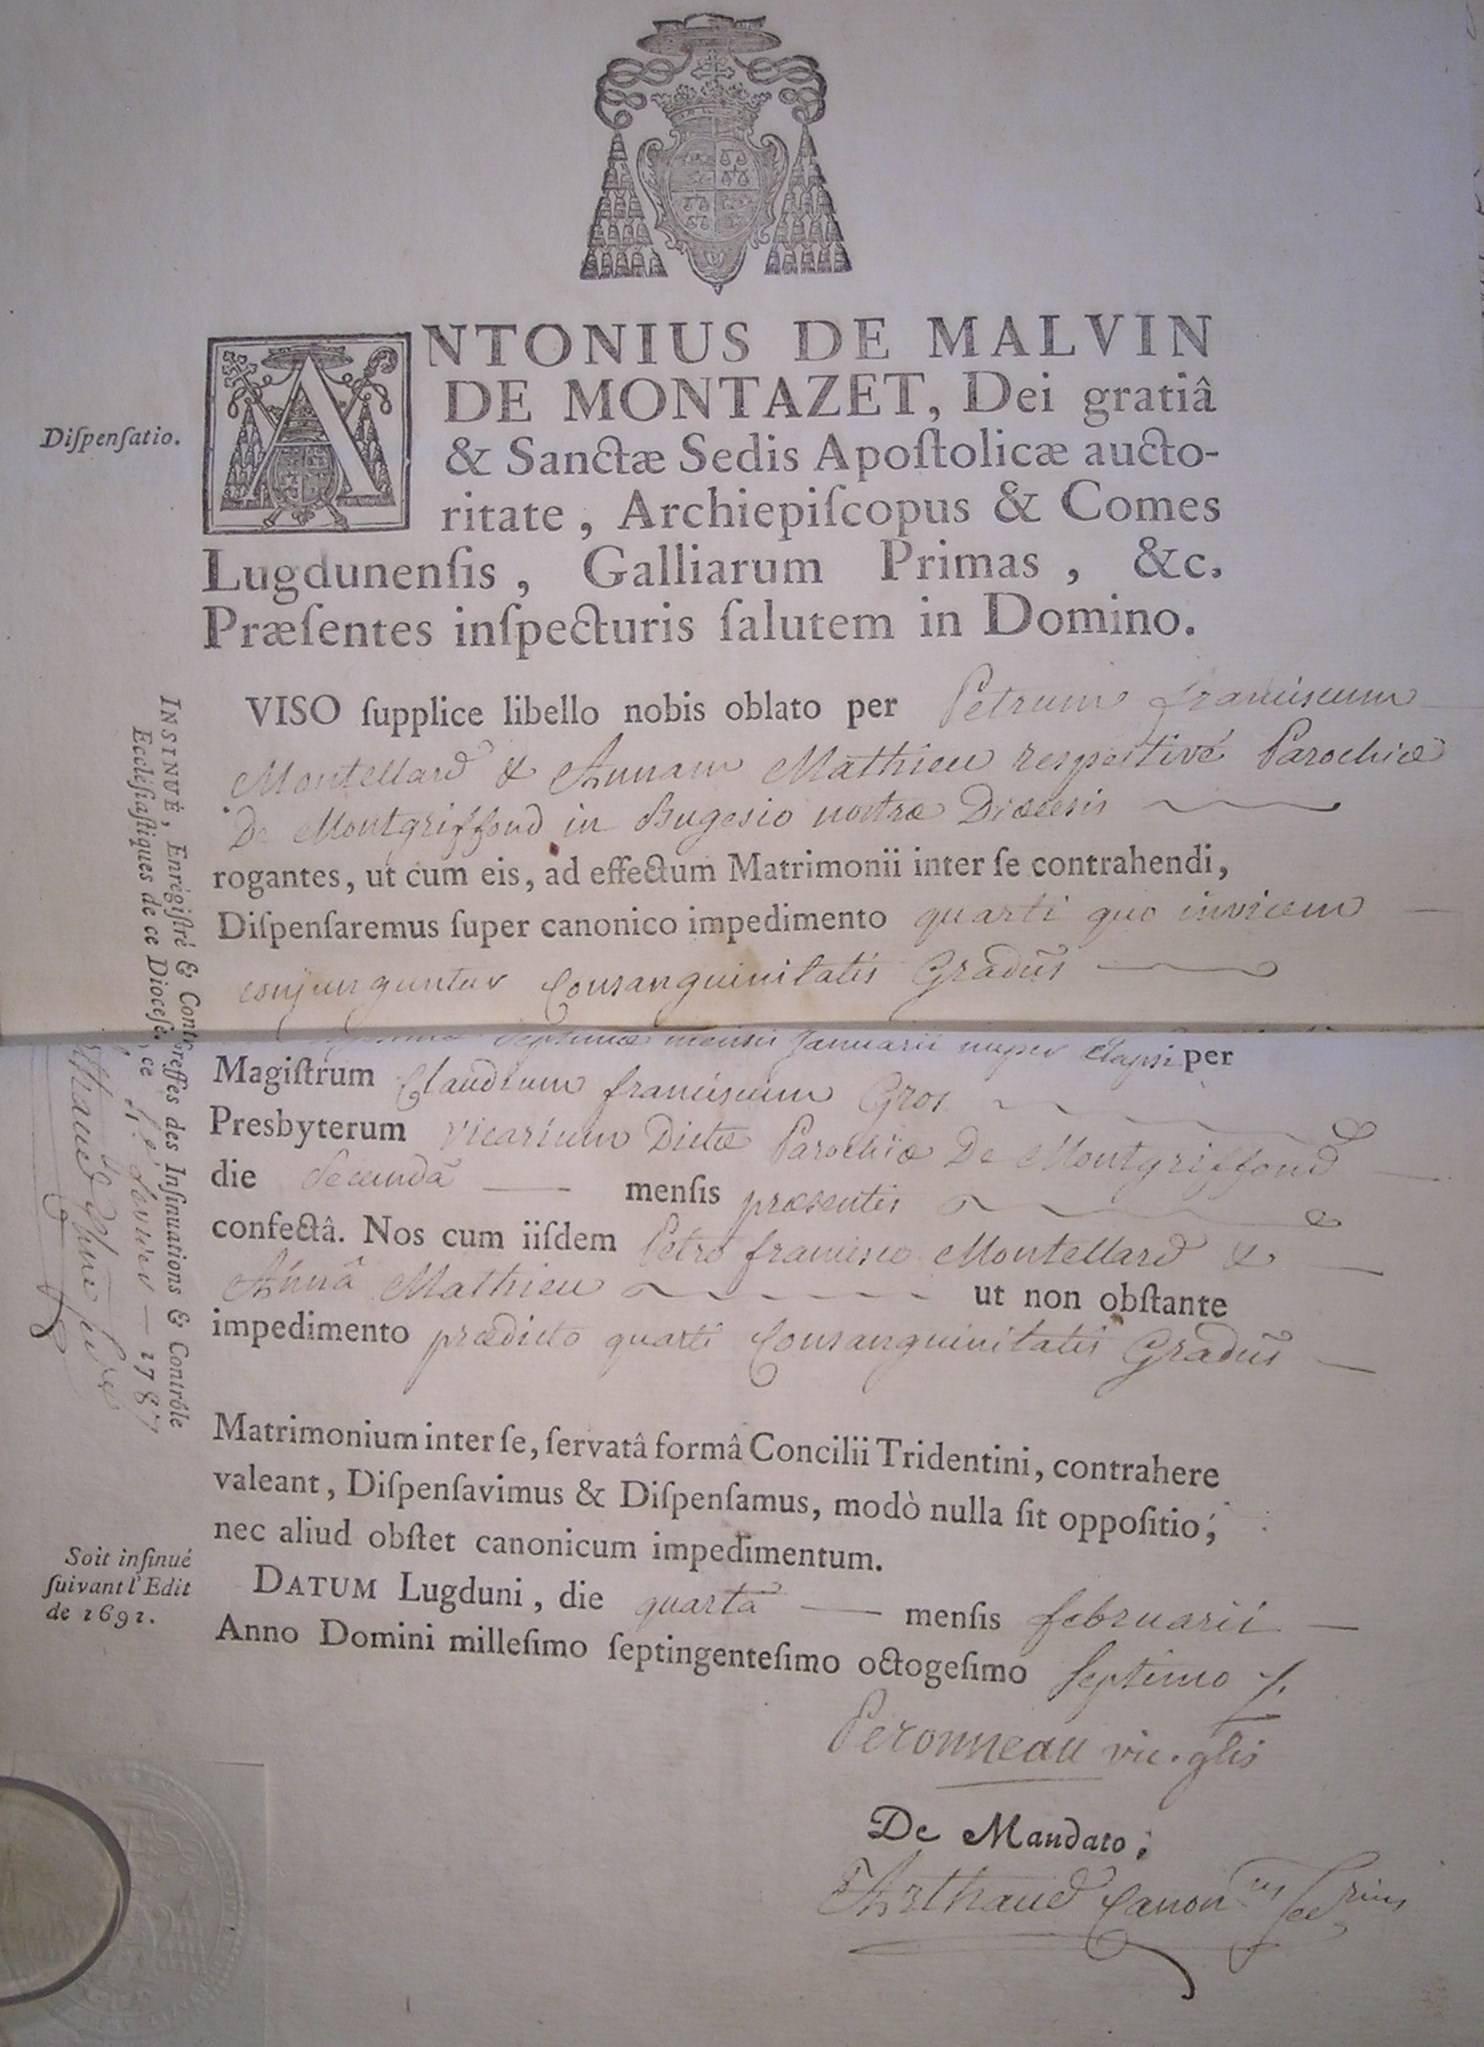 Diſpenſatio.
ANTONIUS DE MALVIN
DE MONTAZET, Dei gratiâ
& Sanctæ Sedis Apoſtolicæ aucto-
ritate, Archiepiſcopus & Comes
Lugdunenſis, Galliarum Primas, &c.
Præſentes inſpecturis ſalutem in Domino.
VISO ſupplice libello nobis oblato per Petrum franciscum
Montellard & Annam Mathieu respectivé Parochiæ
De Montgriffond in Bugesio nostræ Diœcesis
rogantes, ut cum eis, ad effectum Matrimonii inter ſe contrahendi,
Diſpenſaremus ſuper canonico impedimento quarti quo invicem
conjunguntur Consanguinitatis Gradûs
septima mensis Januarii nuper Elapsi per
Magiſtrum Claudium franciscum Gros
Presbyterum vicarium Dictæ Parochiæ De Montgriffond
die Secundâ mensis præsentis
confectâ. Nos cum iiſdem Petro francisco Montellard &
Annâ Mathieu ut non obſtante
impedimento prædicto quarti Consanguinitatis Gradûs
Matrimonium inter ſe, ſervatâ formâ Concilii Tridentini, contrahere
valeant, Diſpenſavimus & Diſpenſamus, modò nulla ſit oppoſitio;
nec aliud obſtet canonicum impedimentum.
DATUM Lugduni, die quartâ mensis februarii
Anno Domini milleſimo ſeptingenteſimo octogeſimo Septimo
Peronneau vic. glis
De Mandato;
Arthaud Canoncus Secrius
INSINUÉ, Enrégiſtré & Cont reſſes des Inſinuations & Contrôle
Eccléſiaſtiques de ce Dioceſe, ce 4e. fevrier 1787
Arthaud
Soit inſinué
ſuivant l'Edit
de 1691.